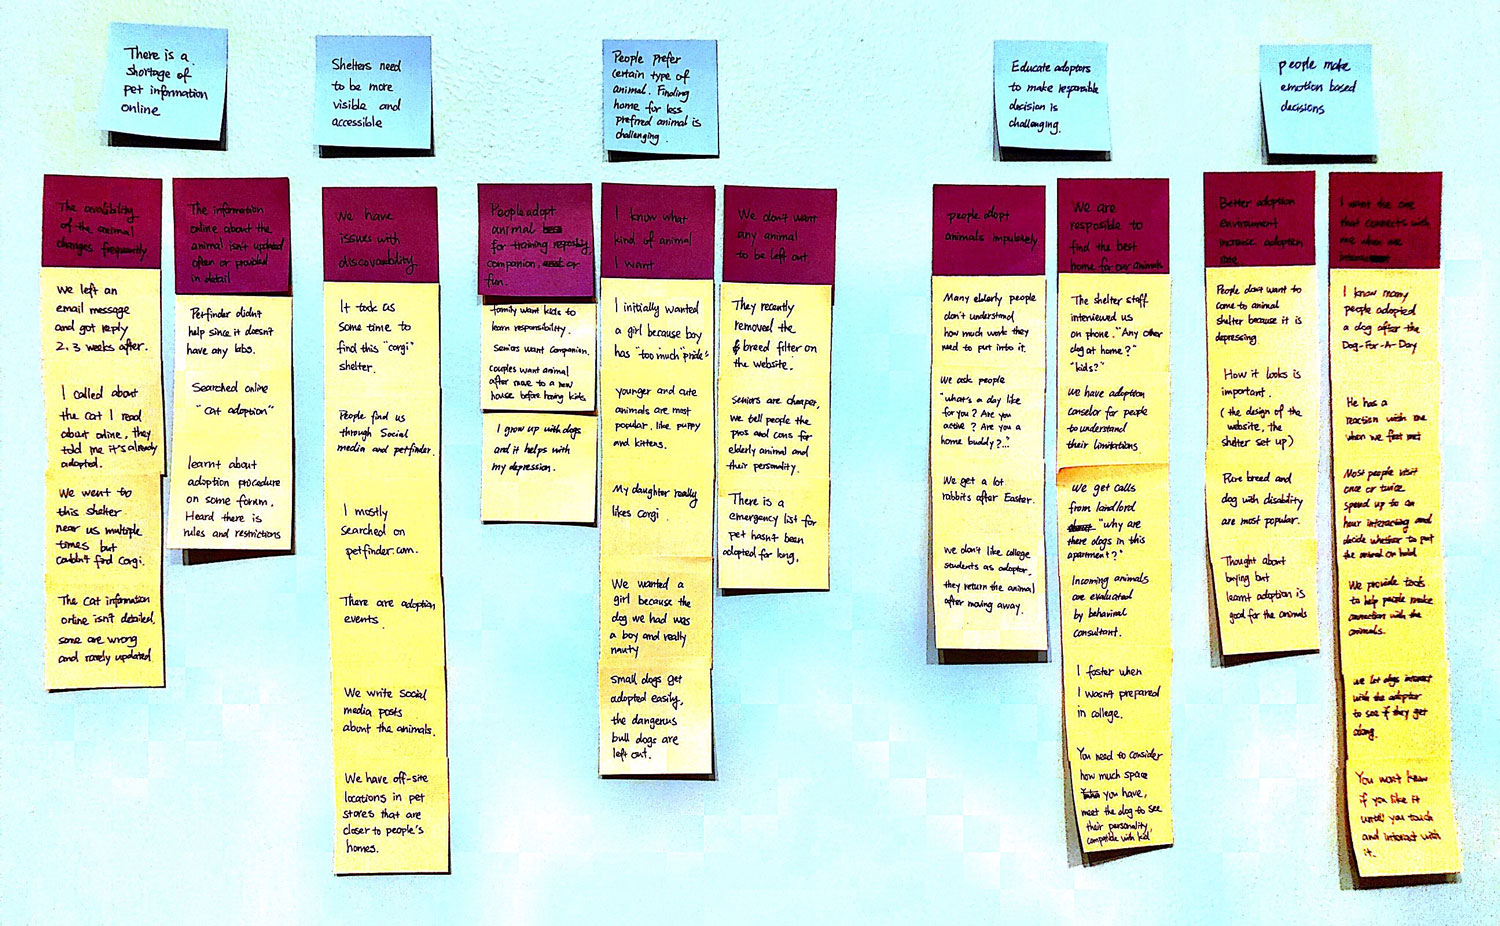 There is a
shortage of
pet information
online
The avalibility
of the animal
changes frequently
We left an
email message
and got reply
2. 3 weeks after.
I called about
the cat I read
about online, they
told me it's already
adopted.
We went to
this shelter
near us multiple
times but
couldn't find Corgi.
The cat information
online isn't detailed
some are wrong
and rarely updated
The information
online about the
animal isn't updated
often or provided
in detail
Petfinder didn't
help since it doesn't
have any labs.
Searched online
"Cat adoption"
learnt about
adoption procedure
on some forum.
Heard there is
rules and restrictions
Shelters need
to be more
visible and
accessible
We have
issues with
discoverability
It took us
some time to
find this "corgi"
shelter.
People find us
through Social
media and petfinder.
I mostly
searched on
petfinder.com.
There are adoption
events.
We write social
media posts
about the animals.
We have off-site
locations in pet
stores that are
closer to people's
homes.
People prefer
certain type of
animal. Finding
home for less
preferred animal is
challenging.
People adopt
animal
for training resposbly,
companion, or
fun.
family want kids to
learn responsibility.
Seniors want companion.
couples want animal
after move to a new
house before having kids
I grow up with dogs
and it helps with
my depression.
I know what
kind of animal
I want
I initially wanted
a girl because boy
has "too much "pride"
younger and cute
animals are most
popular, like puppy
and kittens.
My daughter really
likes corgi
We wanted a
girl because the
dog we had was
a boy and really
nauty
small dogs get
adopted easily,
the dangerus
bull dogs are
left out.
We don't want
any animal
to be left out
They recently
removed the
breed filter on
the website.
seniors are cheaper,
we tell people the
pros and cons for
elderly animal and
their personality.
There is a
emergency list for
pet hasn't been
adopted for long.
Educate adoptors
to make responsible
decision is
challenging.
people adopt
animals impulsively
Many elderly people
don't understand
how much work they
need to put into it.
We ask people
"what's a day like
for you? Are you
active? Are you a
home buddy?..."
We get a lot
rabbits after Easter.
We don't like college
students as adoptor,
they return the animal
after moving away.
We are
resposible to
find the best
home for our animals
The shelter staff
interviewed us
on phone. "Any other
dog at home?"
"kids?"
we have adoption
conselor for people
to understand
their limitations
We get calls
from landlord
"why are
there dogs in this
apartment?"
Incoming animals
are evaluated
by behavioral
consultant.
I foster when
I wasn't prepared
in college.
You need to consider
how much space
you have,
meet the dog to see
their personality
compatible with kid
people make
emotion based
decisions
Better adoption
environment
increase adoption
rate
People don't want to
come to animal
shelter because it is
depressing
How it looks is
important.
(the design of the
website, the
shelter set up)
Pure breed and
dog with disability
are most popular.
Thought about
buying but
learnt adoption is
good for the animals
I want the one
that connects with
me when we
I know many
people adopted
a dog after the
Dog-For-A-Day
He has a
reaction with me
when we first met
Most people visit
once or twice
spend up to an
hour interacting and
decide whether to put
the animal on hold
We provide tools
to help people make
connection with the
animals.
we let dogs interact
with the adoptor
to see if they get
along.
You won't know
if you like it
until you touch
and interact with
it.